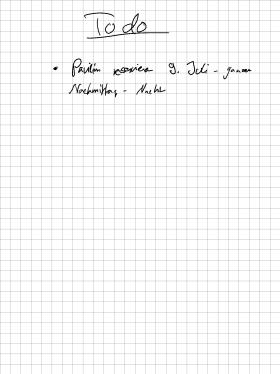 To do
• Pavillon reservieren 9. Juli - ganzer
Nachmittag - Nacht